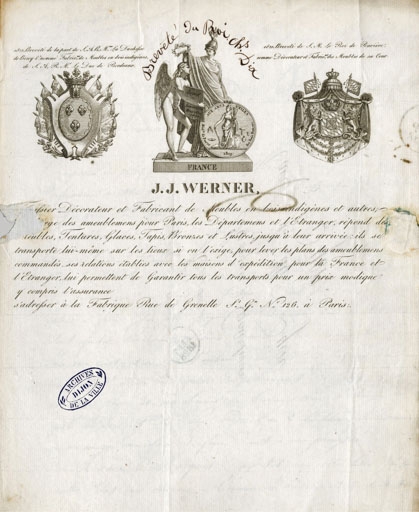 Breveté du Roi Chs Dix
et Breveté de la part de S. A. R. Me. La Duchesse
de Berry Comme Fabrict. de Meubles en bois indigènes
de S. A. R. M. Le Duc de Bordeaux.
et et Breveté de S. M. Le Roi de Bavière
comme Décorateur et Fabrict. des Meubles de sa Cour
FRANCE
J. J. WERNER,
Décorateur et Fabricant de Meubles en bois indigènes et autres,
des ameublemens pour Paris, les Départemens et l'Etranger, répond des
Meubles, Tentures, Glaces, Tapis, Bronzes et Lustres jusqu'à leur arrivée; ils se
transporte lui-même sur les lieux si on l'exige, pour lever les plans des ameublemens
commandés, ses relations établies avec les maisons d'expédition pour la France et
l'Etranger, lui permettent de Garantir tous les transports pour un prix modique
y compris l'assurance
s'adresser à la Fabrique Rue de Grenelle St. Gn. No. 126. à Paris.
ARCHIVES
DIJON
DE LA VILLE